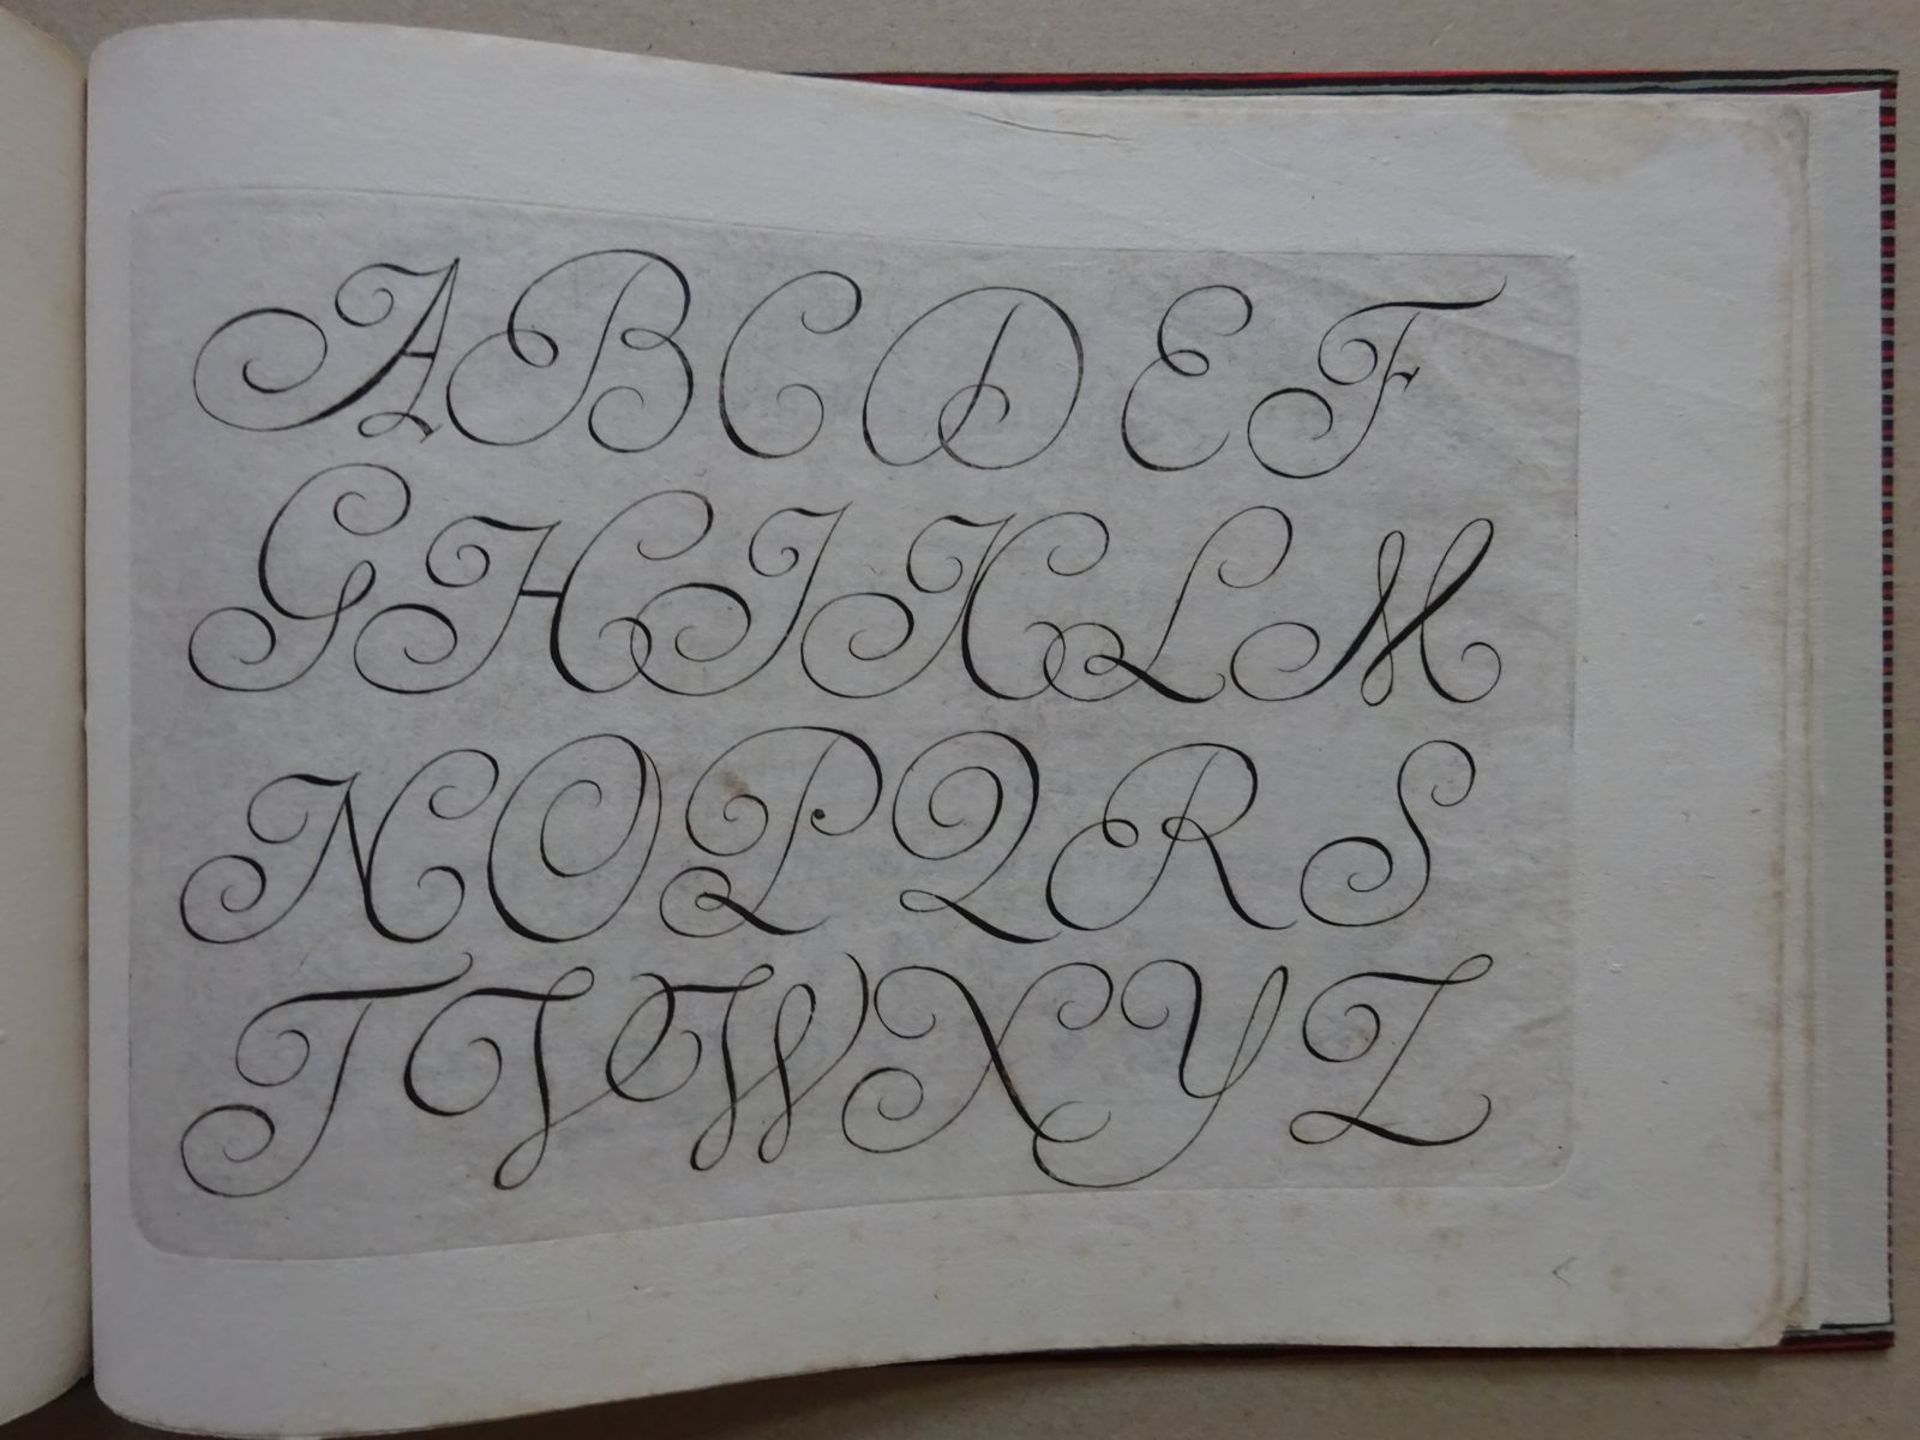 ABCDEF
GHIKLM
NOPQRS
TVWXYZ